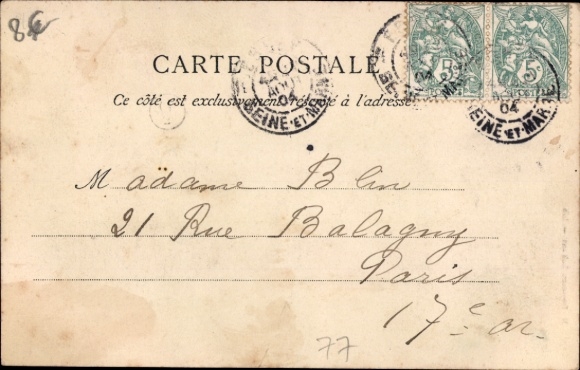 CARTE POSTALE
Ce côté est exclusivement réservé à l'adresse
Madame Blin
21 Rue Balagny
Paris
17e ar.
77
5
5
AOUT
SEINE-ET-MARNE
04
SEINE-ET-MARNE